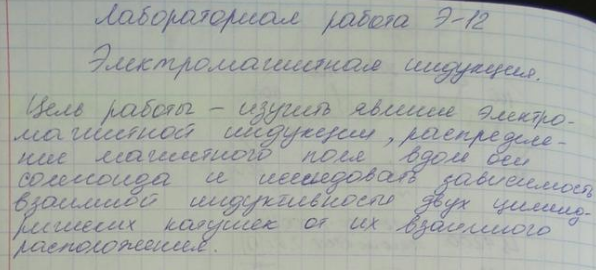 Лабораторная работа Э-12
Электромагнитная индукция.
Цель работы – изучить явление электро-
магнитной индукции, распределе-
ние магнитного поля вдоль оси
соленоида и исследовать зависимость
взаимной индуктивности двух цилинд-
рических катушек от их взаимного
расположения.